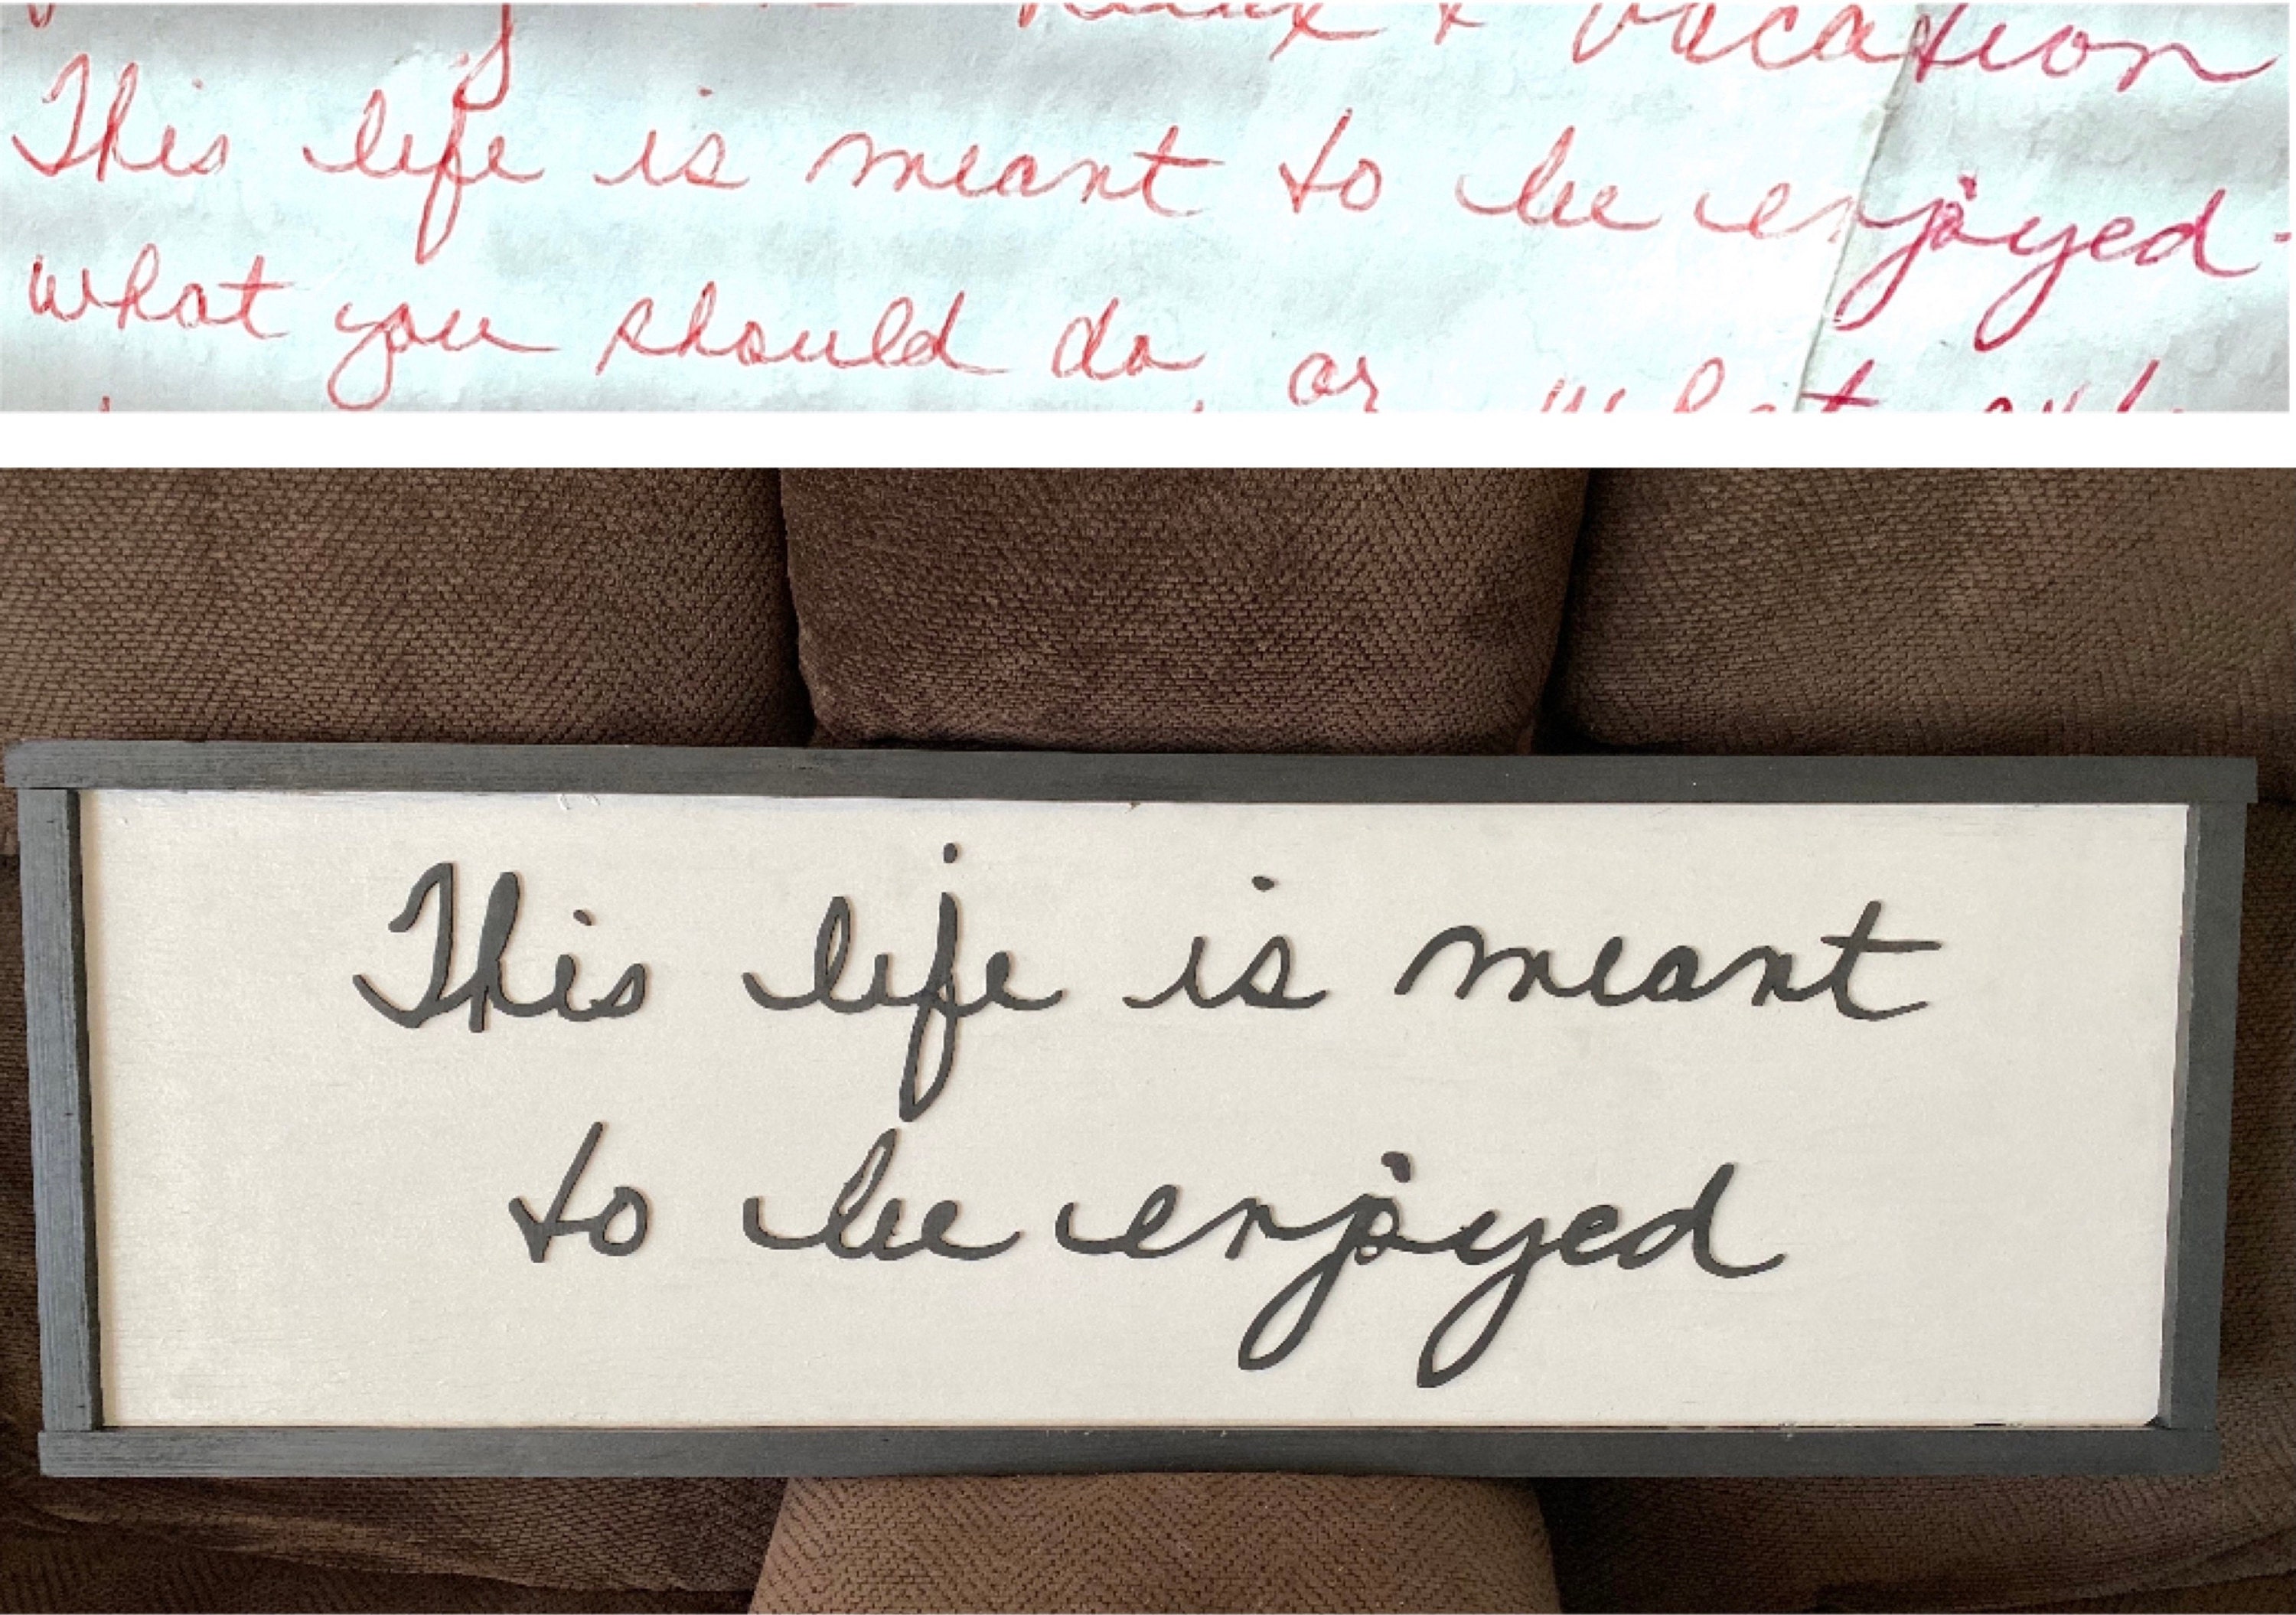 & vacation
This life is meant to be enjoyed -
what you should do, or what
This life is meant
to be enjoyed